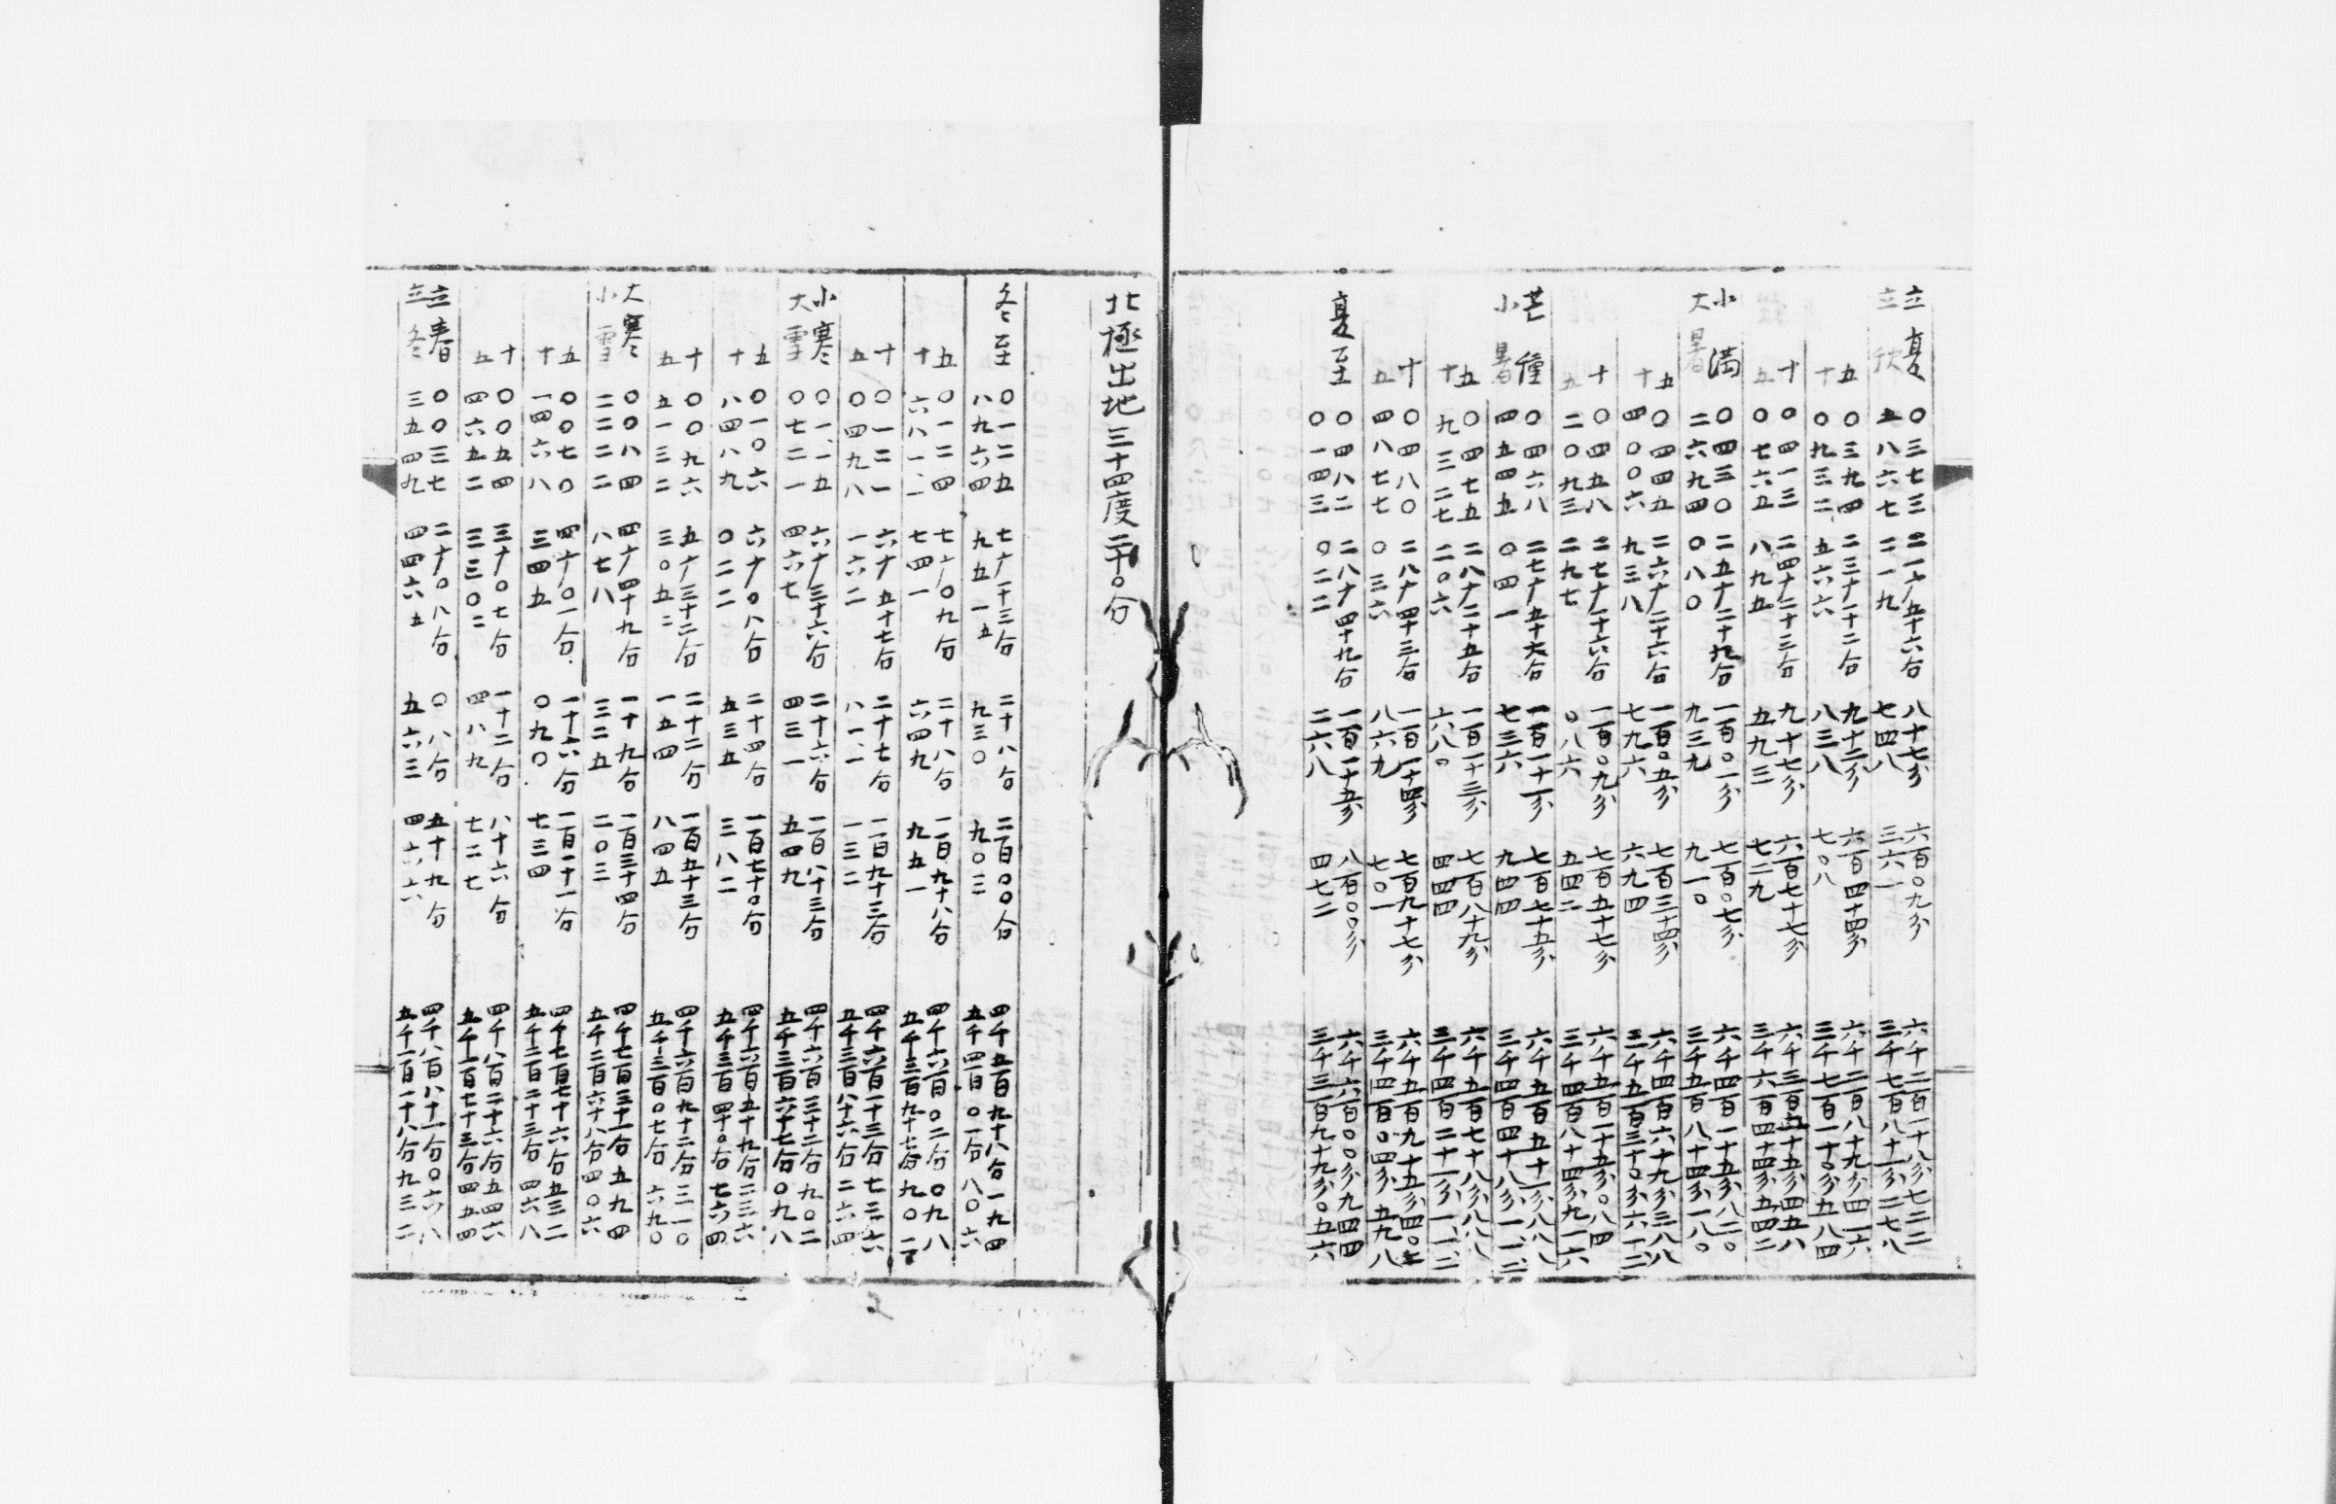 立夏 〇三七三 二一十五十六分 八十七分 六百〇九分 六千二百一十八分七二二
立秋 五八六七 二一九 七四八 三六一 三千七百八十一分二七八
五 〇三九四 二三十一十二分 九十二分 六百四十四分 六千二百八十九分四一六
十 〇九三二 五六六 八三八 七〇八 三千七百一十〇分五八四
十 〇四一三 二四十二十三分 九十七分 六百七十七分 六千三百五十五分四五八
五 〇七六五 八九五 五九三 七二九 三千六百四十四分五四二
小滿 〇四三〇 二五十二十九分 一百〇一分 七百〇七分 六千四百一十五分八二〇
大暑 二六九四 〇八〇 九三九 九一〇 三千五百八十四分一八〇
五 〇四四五 二六十二十六分 一百〇五分 七百三十四分 六千四百六十九分三八八
十 四〇〇六 九三八 七九六 六九四 三千五百三十〇分六一二
十 〇四五八 二七十一十六分 一百〇九分 七百五十七分 六千五百一十五分〇八四
五 二〇九三 二九七 〇八六 五四二 三千四百八十四分九一六
芒種 〇四六八 二七十五十六分 一百一十一分 七百七十五分 六千五百五十一分八八八
小暑 四五四五 〇四一 七三六 九四四 三千四百四十八分一一二
五 〇四七五 二八十二十五分 一百一十三分 七百八十九分 六千五百七十八分八八八
十 九三二七 二〇六 六八〇 四四四 三千四百二十一分一一二
十 〇四八〇 二八十四十三分 一百一十四分 七百九十七分 六千五百九十五分四〇二
五 四八七七 〇三六 八六九 七〇一 三千四百〇四分五九八
夏至 〇四八二 二八十四十九分 一百一十五分 八百〇〇分 六千六百〇〇分九四四
〇一四三 〇二二 二六八 四七二 三千三百九十九分〇五六
北極出地三十四度二十〇分
冬至 〇一二五 七十一十三分 二十八分 二百〇〇分 四千五百九十八分一九四
八九六四 九五一五 九三〇 九〇三 五千四百〇一分八〇六
五 〇一二四 七十〇九分 二十八分 一百九十八分 四千六百〇二分〇九八
十 六八一一 七四一 六四九 九五一 五千三百九十七分九〇二
十 〇一二一 六十五十七分 二十七分 一百九十三分 四千六百一十三分七三六
五 〇四九八 一六二 八一一 一三二 五千三百八十六分二六四
小寒 〇一一五 六十三十六分 二十六分 一百八十三分 四千六百三十二分九〇二
大雪 〇七二一 四六七 四三一 五四九 五千三百六十七分〇九八
五 〇一〇六 六十〇八分 二十四分 一百七十〇分 四千六百五十九分二三六
十 八四八九 〇二二 五三五 三八二 五千三百四十〇分七六四
十 〇〇九六 五十三十二分 二十二分 一百五十三分 四千六百九十二分三一〇
五 五一三二 三〇五二 一五四 八四五 五千三百〇七分六九〇
大寒 〇〇八四 四十四十九分 一十九分 一百三十四分 四千七百三十一分五九四
小雪 二二二二 八七八 三二五 二〇三 五千二百六十八分四〇六
五 〇〇七〇 四十〇一分 一十六分 一百一十一分 四千七百七十六分五三二
十 一四六八 三四五 〇九〇 七三四 五千二百二十三分四六八
十 〇〇五四 三十〇七分 一十二分 八十六分 四千八百二十六分五四六
五 四六五二 三三〇二 四八九 七二七 五千一百七十三分四五四
立春 〇〇三七 二十〇八分 〇八分 五十九分 四千八百八十一分〇六八
立冬 三五四九 四四六五 五六三 四六六 五千一百一十八分九三二